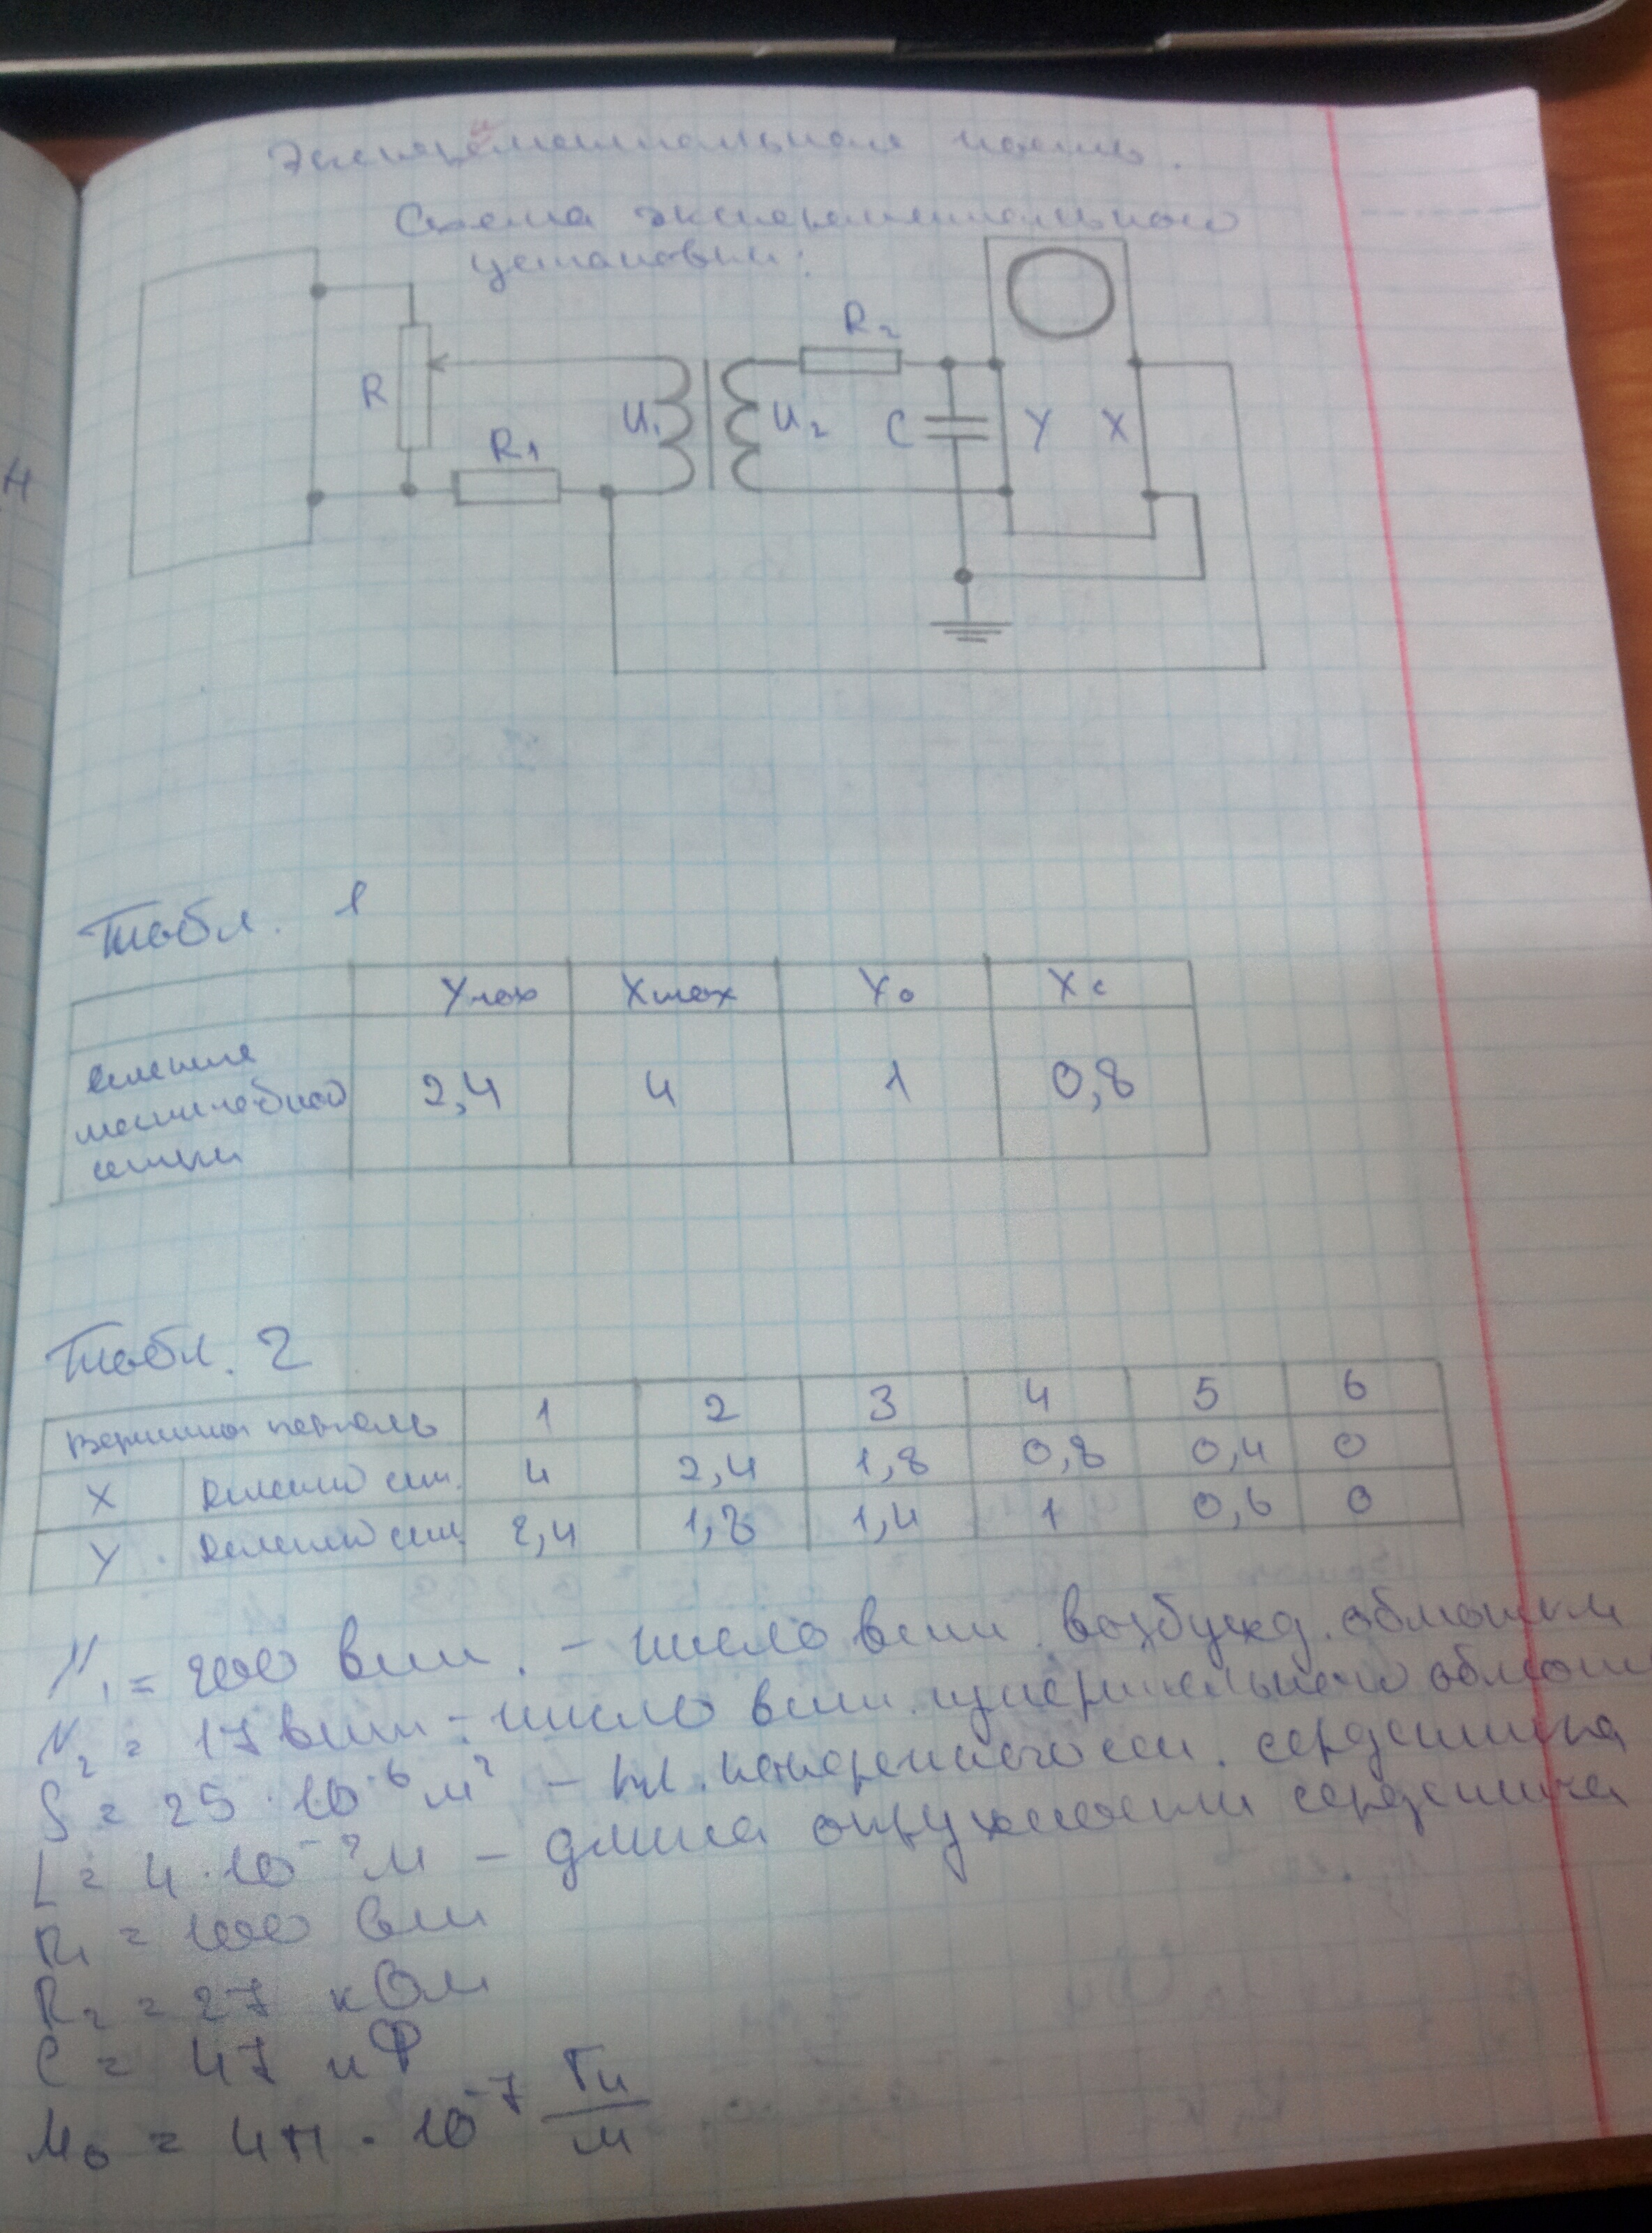 Эксперементальная часть.
и
Схема экспериментального
установки:
R
R₁
U₁
U₂
R₂
C
Y
X
Н
Табл. 1
Ymax Xmax Y₀ Xc
деления масштабной сетки 2,4 4 1 0,8
Табл. 2
Вершина петель 1 2 3 4 5 6
X деления сет. 4 2,4 1,8 0,8 0,4 0
Y деления сет. 2,4 1,8 1,4 1 0,6 0
N₁ = 200 вит. - число вит. возбужд. обмотки
N₂ = 17 вит - число вит. измерительного обмот
S = 25 · 10⁻⁶ м² - пл. поперечного сеч. сердечника
L = 4 · 10⁻² м - длина окружности сердечника
R₁ = 100
R₂ = 27 кОм
C = 47 нФ
M₀ = 4π · 10⁻⁷ Гн/м